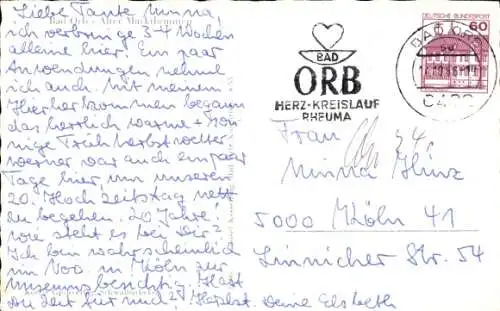 Bad Orb - Alter Musiktempel
Liebe Tante Minna,
ich verbringe 3-4 Wochen
alleine hier! Ein paar
Anwendungen nehme
ich auch. Mit meinem
Hierherkommen begann
das herrlich warme + son-
nige Frühherbstwetter
Werner war auch ein paar
Tage hier um unseren
20. Hochzeitstag nett
zu begehen. 20 Jahre!
Wie steht es bei Dir?
Ich bin wahrscheinlich
im Nov. in Köln zur
Museumsbesichtig. Hast
du Zeit für mich? Herzlichst. Deine Elsbeth
BAD
ORB
HERZ-KREISLAUF
RHEUMA
DEUTSCHE BUNDESPOST
60
BAD ORB
Frau
Minna Hinz
5000 Köln 41
Linnicher Str. 54